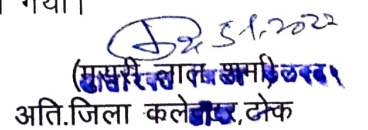 गया।
5.1.2022
(मुरारी लाल शर्मा)
अति.जिला कलेक्टर,टोंक